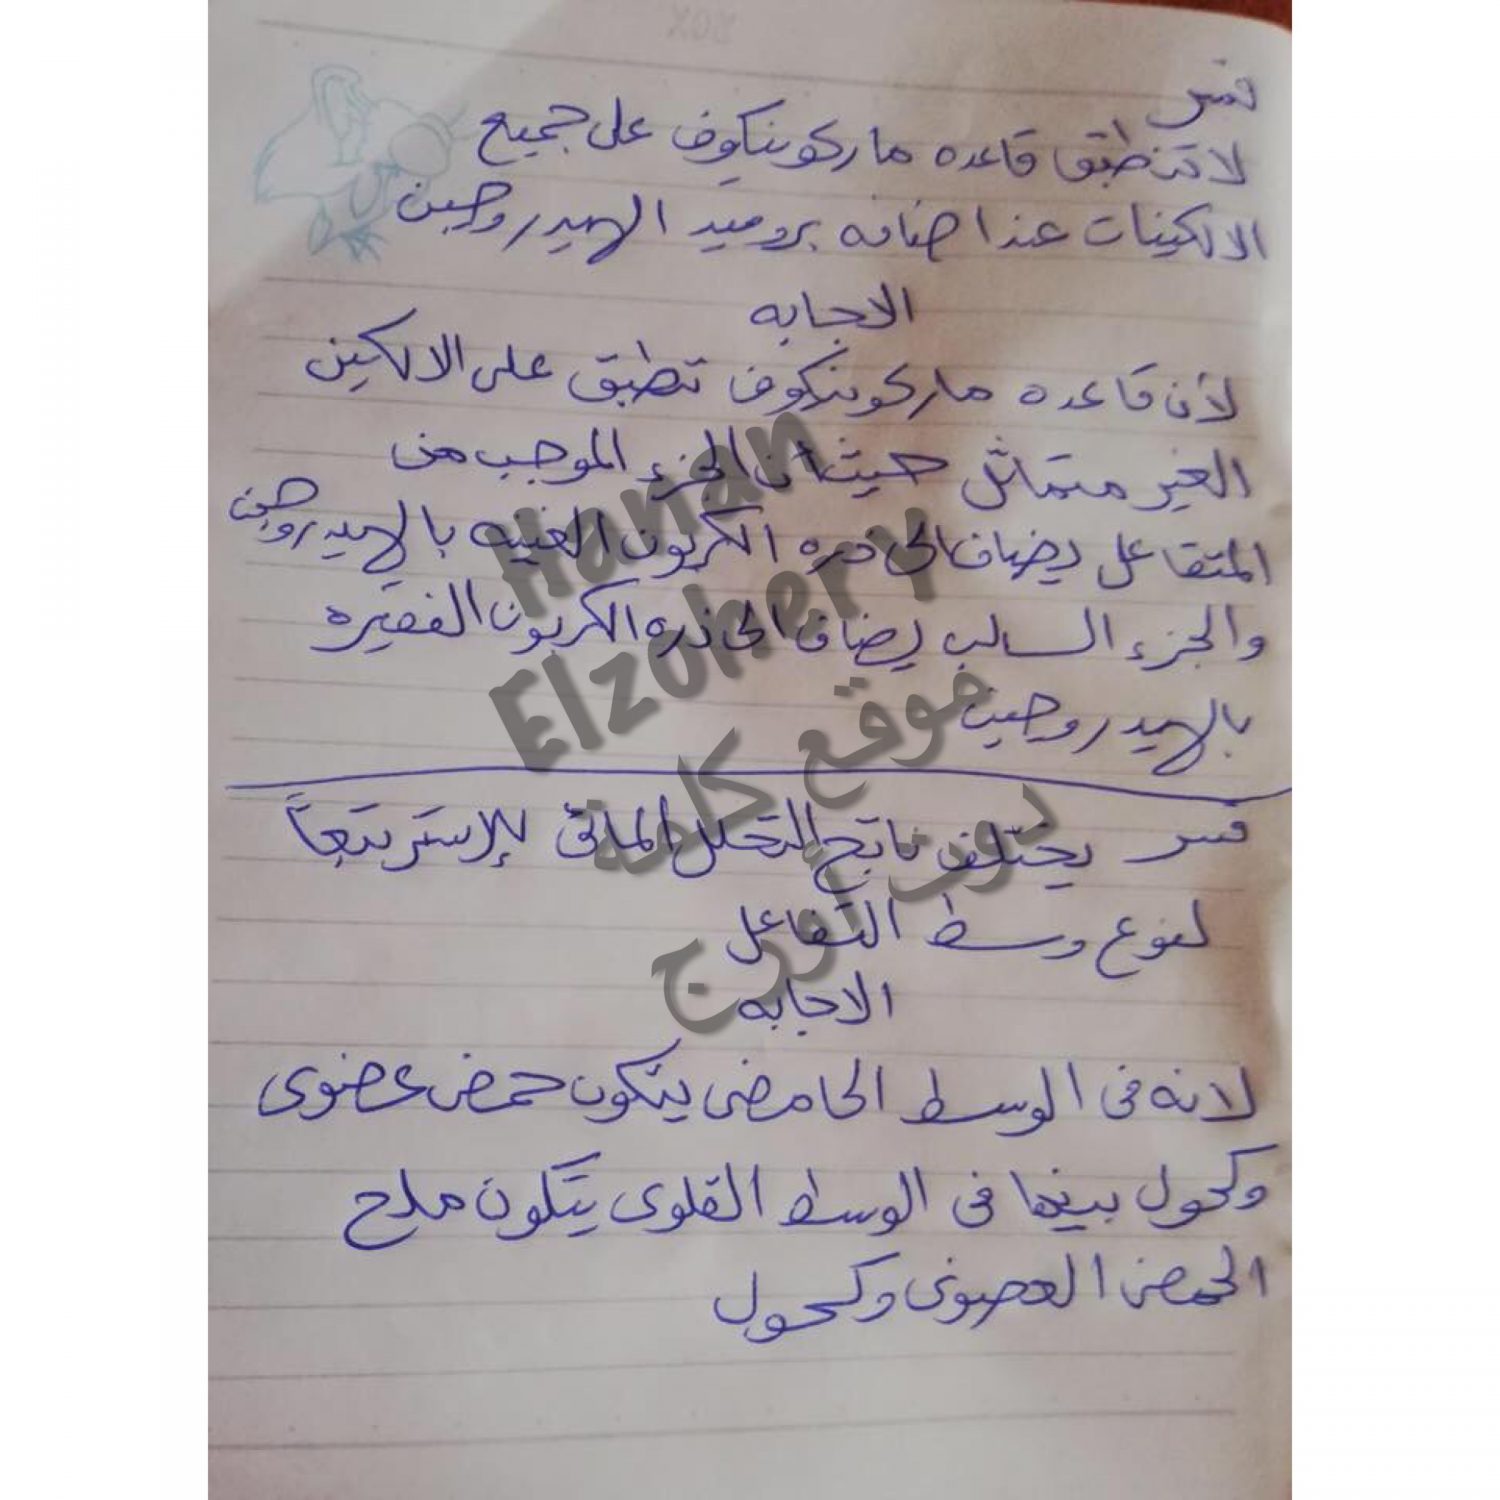 فسر
لا تنطبق قاعده ماركونيكوف على جميع
الالكينات عند اضافه بروميد الهيدروجين
الاجابه
لأن قاعده ماركونيكوف تطبق على الالكين
الغير متماثل حيث أن الجزء الموجب من
المتفاعل يضاف الى ذره الكربون الغنيه بالهيدروجين
والجزء السالب يضاف الى ذره الكربون الفقيره
بالهيدروجين
فسر يختلف ناتج التحلل المائى للإستر تبعاً
لنوع وسط التفاعل
الاجابه
لانه فى الوسط الحامضى يتكون حمض عضوى
وكحول بينما فى الوسط القلوى يتكون ملح
الحمض العضوى وكحول
Hanan
Elzohery
موقع كلمة
دوت أورج